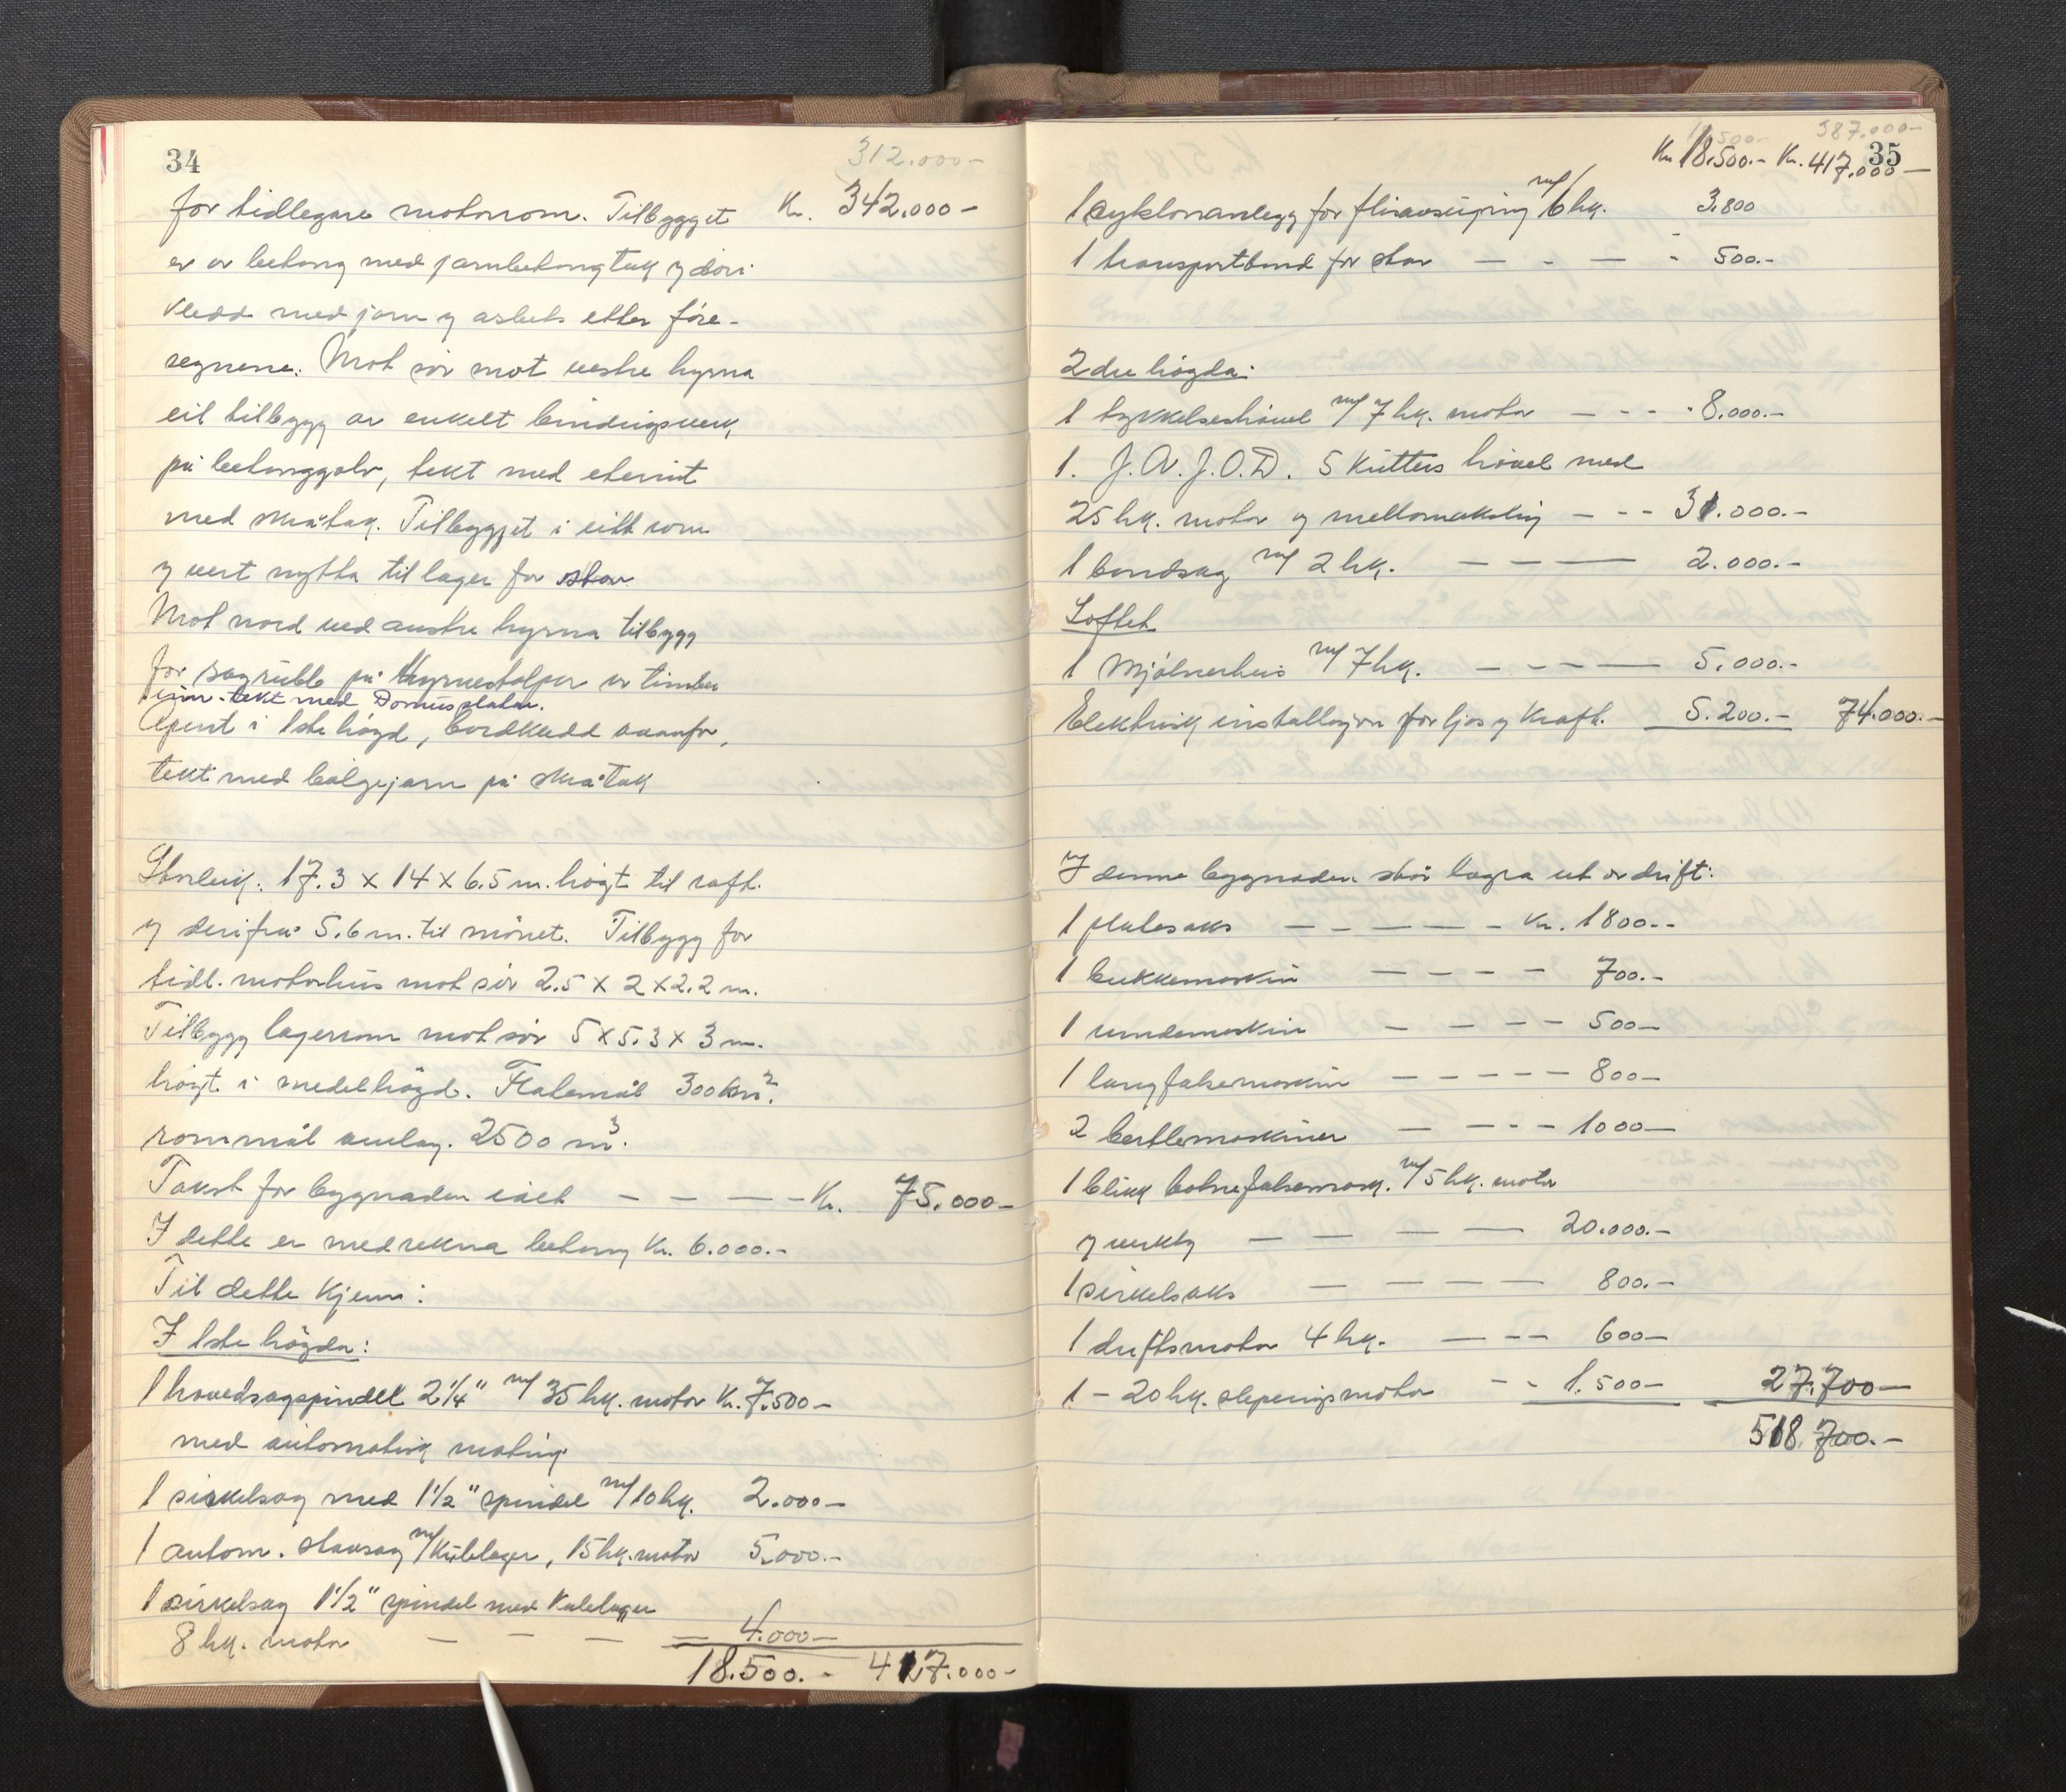 34
312.000-
for tidlegare motorrom. Tilbygget Kr. 342.000-
er av betong med jarnbetongtak og dör
kledd med jarn og asbest etter före-
segnene. Mot sör mot vestre hyrna
eit tilbygg av enkelt bindingsverk,
på betonggolv, tekt med eternit
med skråtak. Tilbygget i eitt rom
og vert nytta til lager for stav
Mot nord ved austre hyrna tilbygg
for sagrubb på hyrnestolpar av timber
inn. tekt med Domusplatar.
Opent i 1ste högd, bordkledd ovanfor,
tekt med bölgejarn på skråtak
Storleik: 17.3 x 14 x 6.5 m. högt til raft.
og derifrå 5.6 m. til mönet. Tilbygg for
tidl. motorhus mot sör 2.5 x 2 x 2.2 m.
Tilbygg lagerrom mot sör 5 x 5.3 x 3 m.
högt i medelhögd. Flatemål 300 km².
rommål omlag. 2500 m³.
Takst for bygnaden ialt – – – – Kr. 75.000-
I dette er medrekna betong Kr. 6.000.-
Til dette kjem:
I 1ste högda:
1 hovedsagspindel 2¼" m/ 35 hk. motor Kr. 7.500-
med automatisk mating
1 sirkelsag med 1½" spindel m/10 hk. 2.000-
1 autom. stavsag m/kulelager, 15 hk. motor 5.000.-
1 sirkelsag 1½" spindel med kulelager
8 hk. motor – – – 4.000-
18.500.- 417.000-
35
500.- 387.000-
Kr. 18.500.- Kr. 417.000-
1 cyklonanlegg for flisavsuging m/ 6 hk. 3.800
1 transportband for stav – - – - 500.-
2dre högda:
1 tykkelseshövel m/ 7 hk. motor – - - - 8.000.-
1. J.A.J.O.D. 5 kutters hövel med
25 hk. motor og mellomaksling – - - 31.000.-
1 bandsag m/ 2 hk. – – – 2.000.-
Loftet
1 Mjölnerhus m/ 7 hk. – - – – 5.000.-
Elektrisk installasjon for ljos og kraft. 5.200.- 74.000.-
I denne bygnaden står lagra ut av drift:
1 platesaks – – – – - Kr. 1800.-
1 bukkemaskin – – – – 700.-
1 rundemaskin – – – – 500-
1 langfalsemaskin – – – – – 800-
2 bertlemaskiner – – - – 1000-
1 blikk botnefalsemask. m/ 5 hk. motor
og verkty – – – – 20.000.-
1 sirkelsaks – – – – 800.-
1 driftsmotor 4 hk. – – – 600-
1 - 20 hk. sleperingsmotor - - 1.500- 27.700-
518.700.-